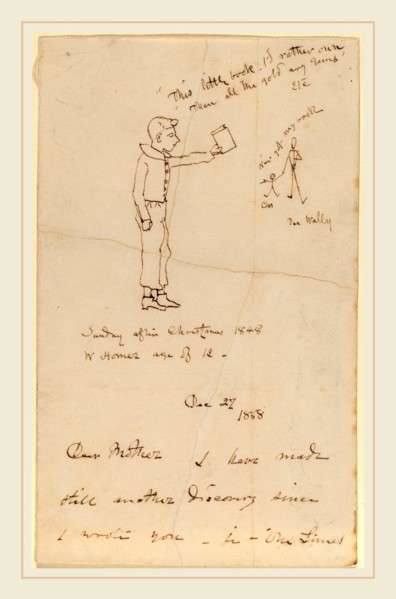 "This little book I'd rather own
Than all the gold and gems
Etc
my book
Sunday after Christmas 1848
W Homer age of 12 -
Dec 27
1888
Dear Mother I have made
still another Discovery since
I wrote you - in - The Times